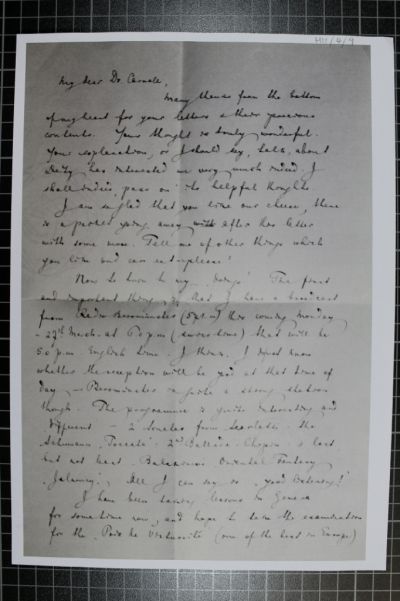 M11/4/9
My dear Dr
Many thanks from the bottom
of my heart for your letters & their generous
contents. Your thought is truly wonderful.
Your explanation, or I should say, talk, about
Deity has interested me very much indeed. I
shall indeed, pass on the helpful thoughts
I am so glad that you like our cheese, there
is a parcel going away with after this letter
with some more. Tell me of other things which
you like and can not replace!
Now to turn to my 'doings'! The first
and important thing, is that I have a broadcast
from Radio Beromünster this coming Monday
- 27th March. at 6 0 p.m. that will be
5.0 p.m. English time. I think. I don't know
whether the reception will be good at that time of
day, - Beromünster is quite a strong station
though. The programme is quite interesting and
different - 2 Sonatas from Scarlatti - the
Schumann 'Toccata' - 2nd Ballade - Chopin & last
but not least. Balakirew Oriental Fantasy
'Islamey'. All I can say is, good listening!
I have been having lessons in Geneva
for some time now, and hope to take the examination
for the Prix de Virtuosité (one of the best in Europe)